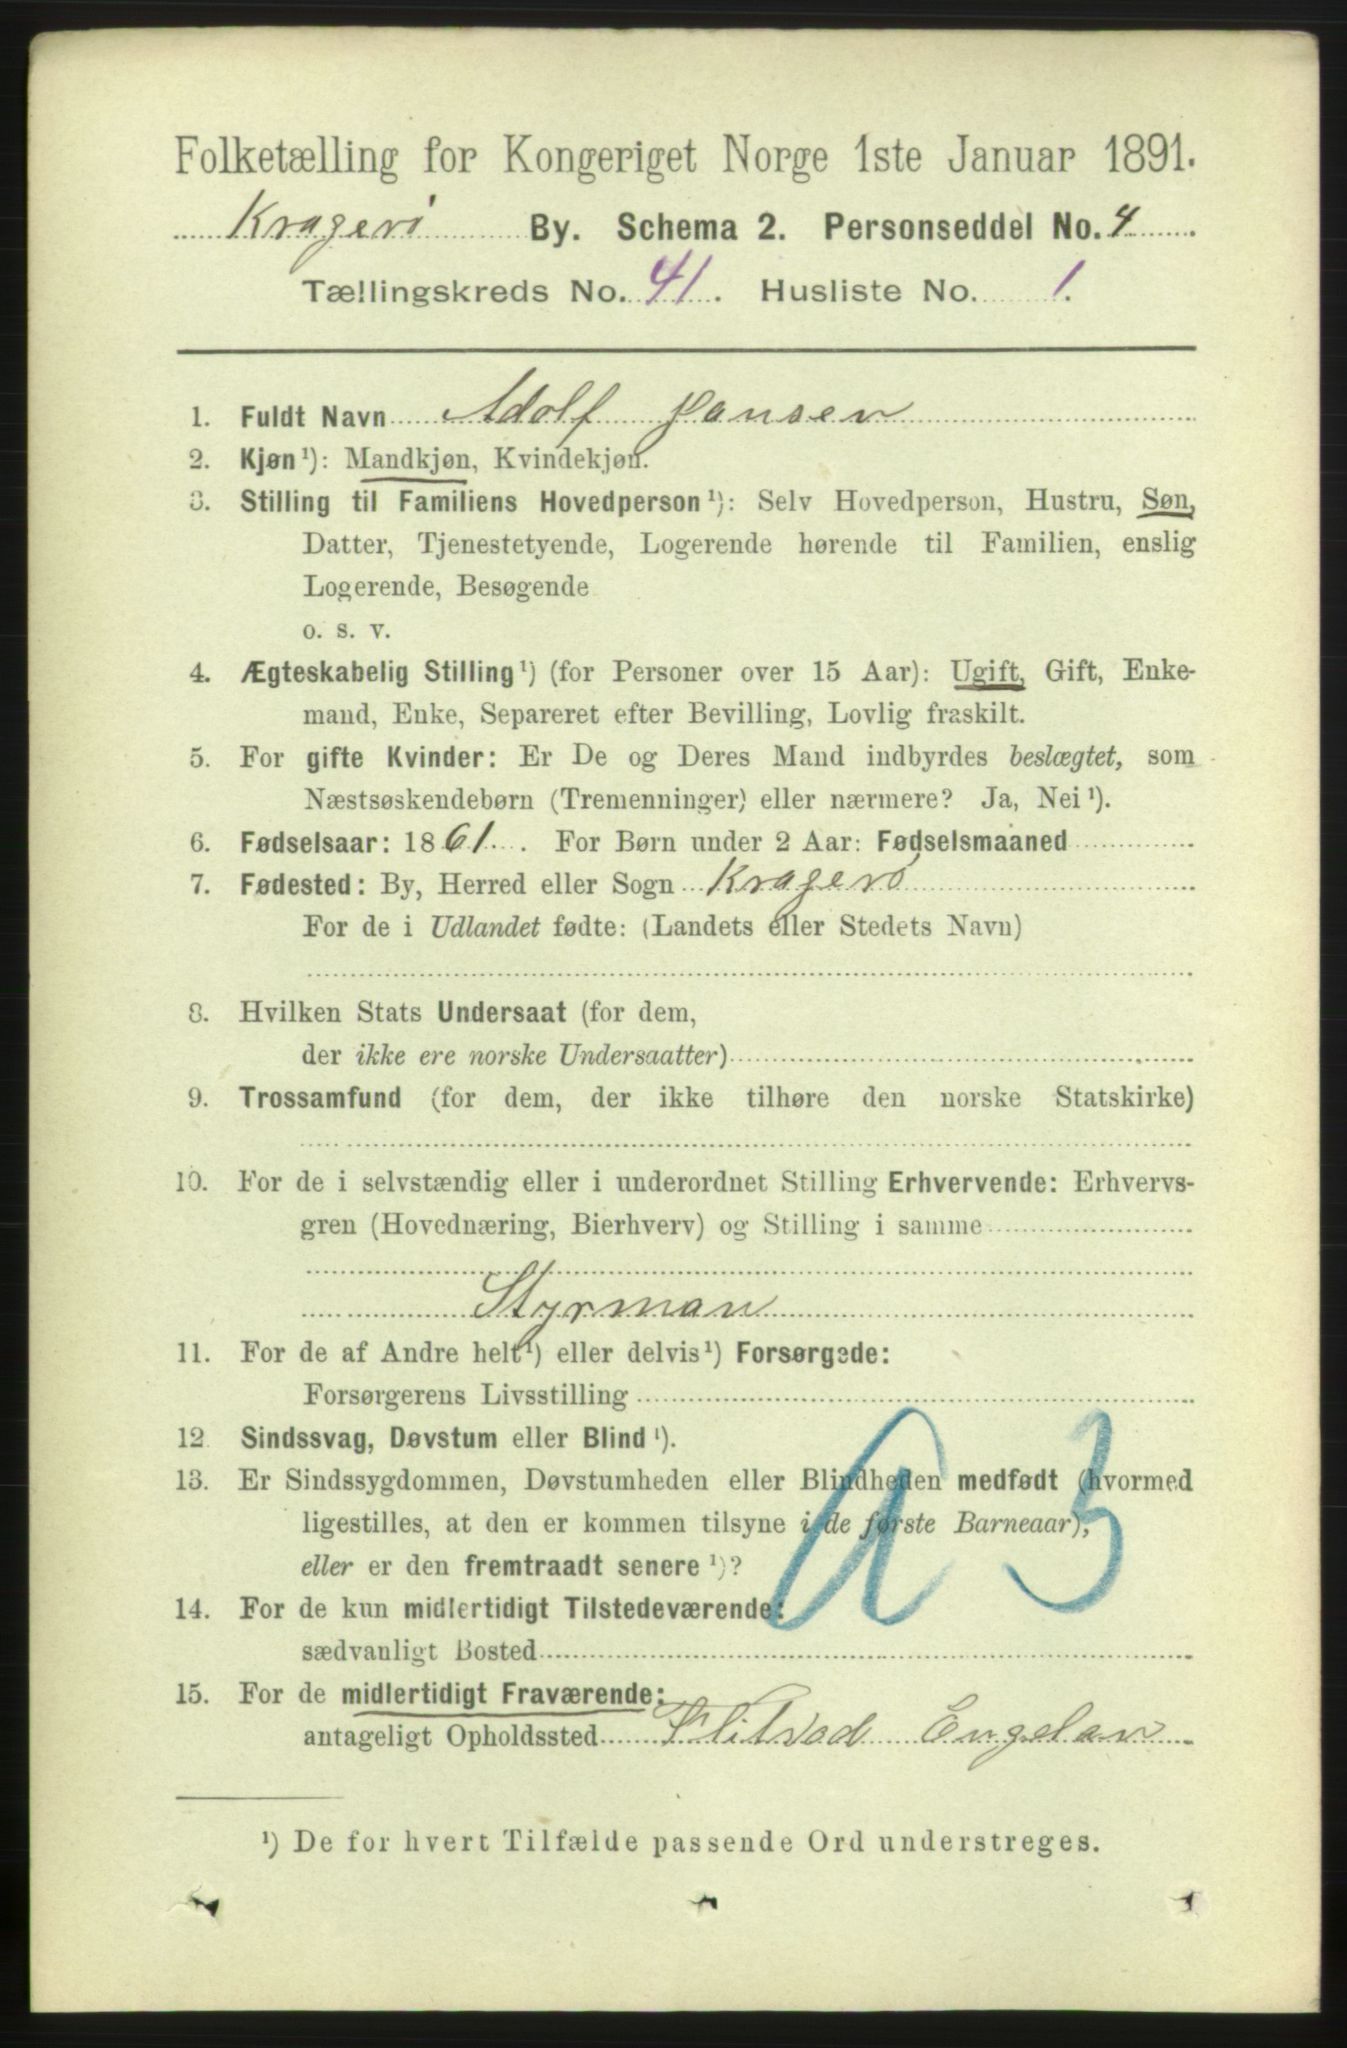 Folketælling for Kongeriget Norge 1ste Januar 1891.
Kragerö By. Schema 2. Personseddel No. 4
Tællingskreds No. 41. Husliste No. 1.
1. Fuldt Navn Adolf Hansen
2. Kjøn ¹): Mandkjøn, Kvindekjøn.
3. Stilling til Familiens Hovedperson ¹): Selv Hovedperson, Hustru, Søn,
Datter, Tjenestetyende, Logerende hørende til Familien, enslig
Logerende, Besøgende
o. s. v.
4. Ægteskabelig Stilling ¹) (for Personer over 15 Aar): Ugift, Gift, Enke-
mand, Enke, Separeret efter Bevilling, Lovlig fraskilt.
5. For gifte Kvinder: Er De og Deres Mand indbyrdes beslægtet, som
Næstsøskendebørn (Tremenninger) eller nærmere? Ja, Nei ¹).
6. Fødselsaar: 1861. For Børn under 2 Aar: Fødselsmaaned
7. Fødested: By, Herred eller Sogn Kragerö
For de i Udlandet fødte: (Landets eller Stedets Navn)
8. Hvilken Stats Undersaat (for dem,
der ikke ere norske Undersaatter)
9. Trossamfund (for dem, der ikke tilhøre den norske Statskirke)
10. For de i selvstændig eller i underordnet Stilling Erhvervende: Erhvervs-
gren (Hovednæring, Bierhverv) og Stilling i samme
Styrman
11. For de af Andre helt ¹) eller delvis ¹) Forsørgede:
Forsørgerens Livsstilling
12. Sindssvag, Døvstum eller Blind ¹).
13. Er Sindssygdommen, Døvstumheden eller Blindheden medfødt (hvormed
ligestilles, at den er kommen tilsyne i de første Barneaar),
eller er den fremtraadt senere ¹)?
a 3
14. For de kun midlertidigt Tilstedeværende:
sædvanligt Bosted
15. For de midlertidigt Fraværende:
antageligt Opholdssted Flitvod Engelan
¹) De for hvert Tilfælde passende Ord understreges.